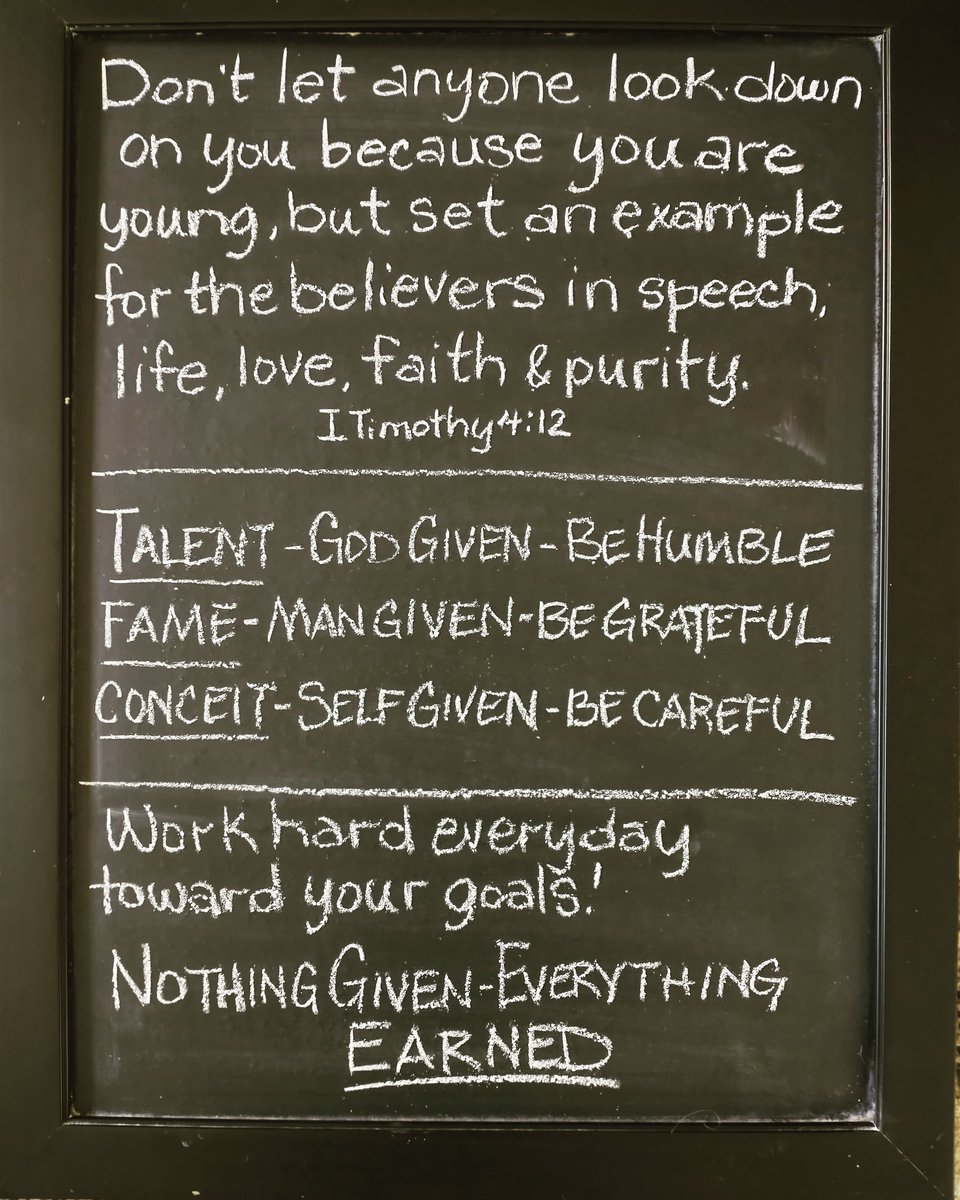 Don't let anyone look down
on you because you are
young, but set an example
for the believers in speech,
life, love, faith & purity.
I Timothy 4:12
TALENT - GOD GIVEN - BE HUMBLE
FAME - MAN GIVEN - BE GRATEFUL
CONCEIT - SELF GIVEN - BE CAREFUL
Work hard everyday
toward your goals!
NOTHING GIVEN - EVERYTHING
EARNED